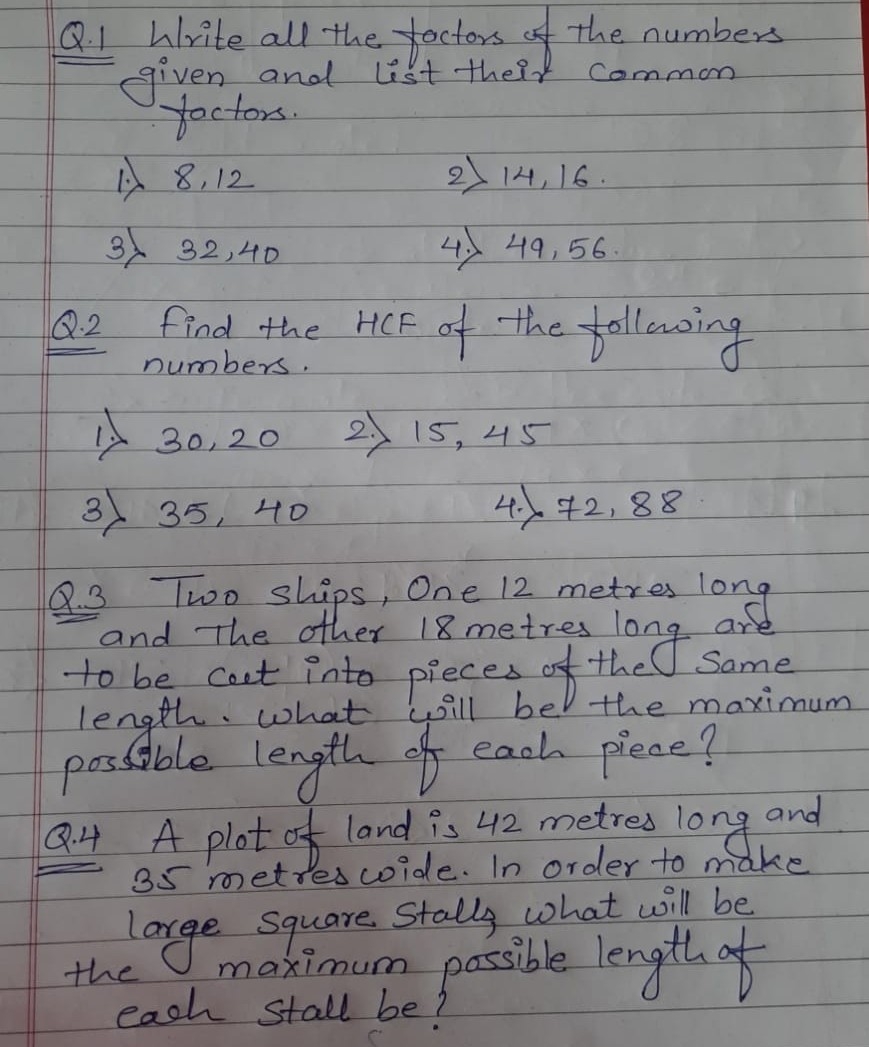 Q.1 Write all the factors of the numbers
given and list their common
factors.
1.) 8,12 2) 14,16.
3) 32,40 4.) 49,56.
Q.2 find the HCF of the following
numbers.
1.) 30,20 2.) 15, 45
3) 35, 40 4.) 72, 88
Q.3 Two ships, One 12 metres long
and The other 18 metres long are
to be cut into pieces of the same
length. What will be the maximum
possible length of each piece?
Q.4 A plot of land is 42 metres long and
35 metres wide. In order to make
large square Stalls, what will be
the maximum possible length of
each stall be?